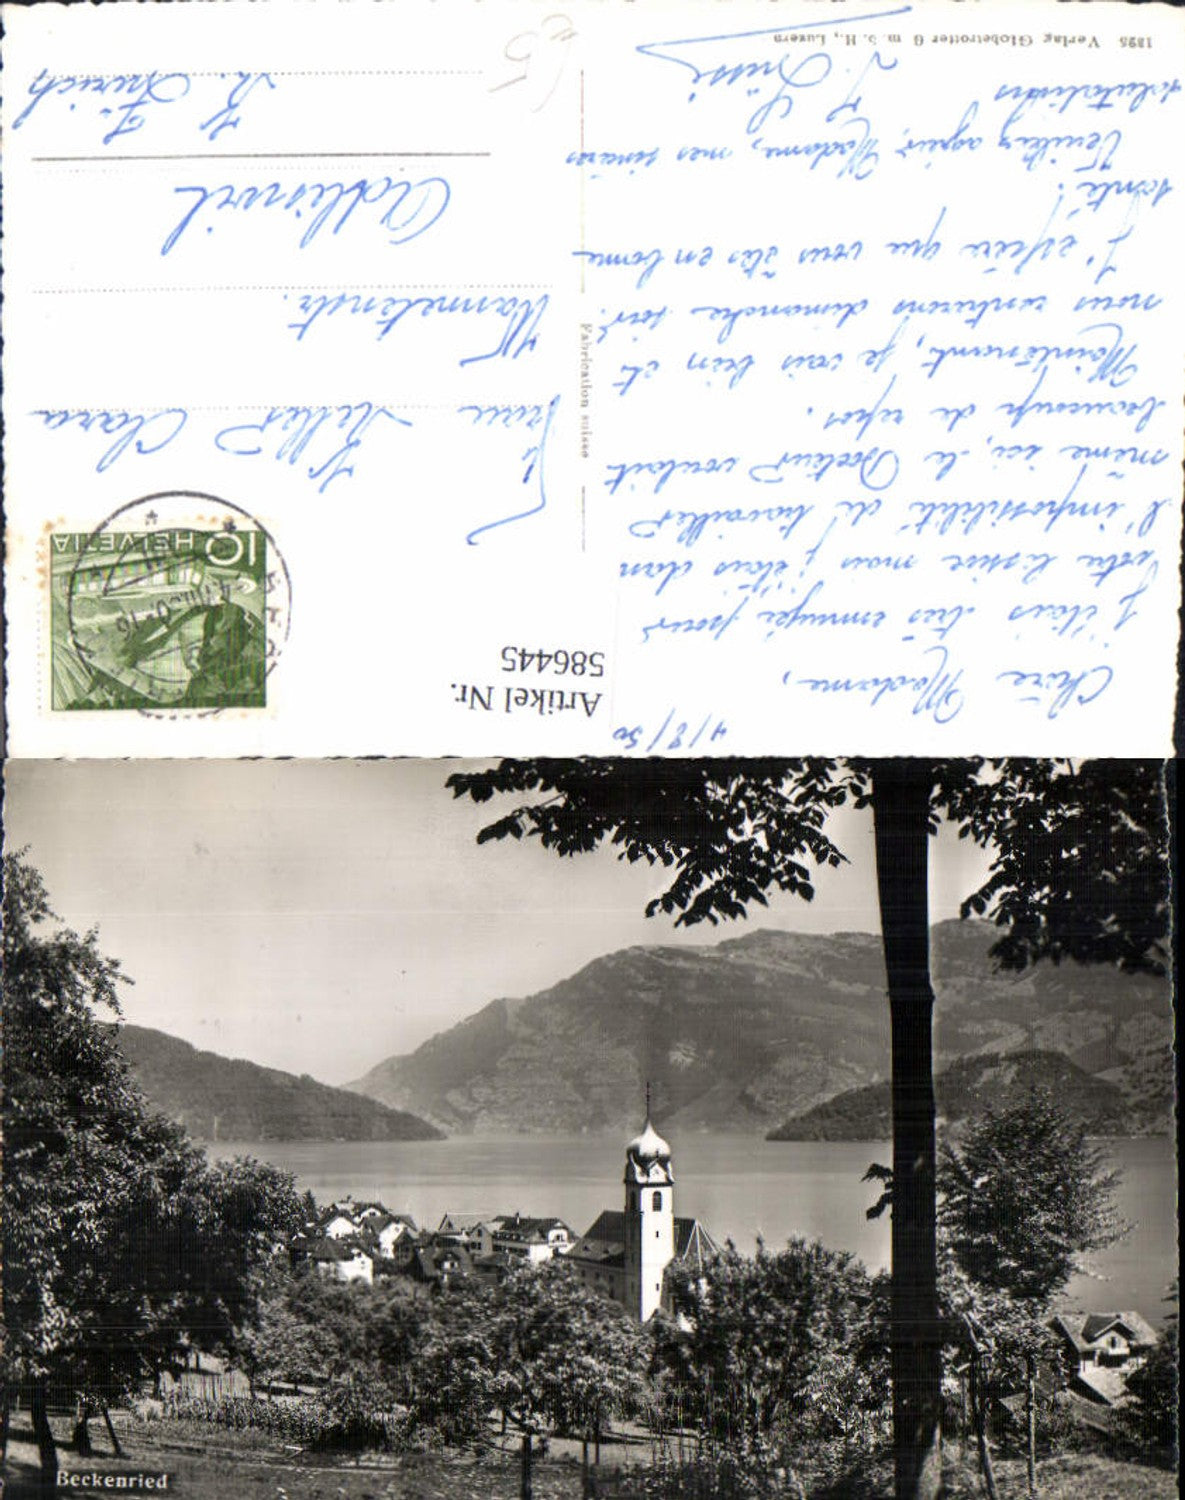 4/8/50
Chère Madame,
J'étais très ennuyée pour
votre lessive mais j'étais dan
l'impossibilité de travailler
même ici, le Docteur voulait
beaucoup de repos.
Maintenant, je vais bien et
nous rentrerons dimanche soir.
J'espère que vous êtes en bonne
santé!
Veuillez agréer, Madame, mes sincères
salutations
1895 Verlag Globetrotter G. m. b. H., Luzern
Fabrication suisse
Artikel Nr.
586445
HELVETIA
10
Frau Keller Clara
Adliswil
Kt. Zürich
Beckenried